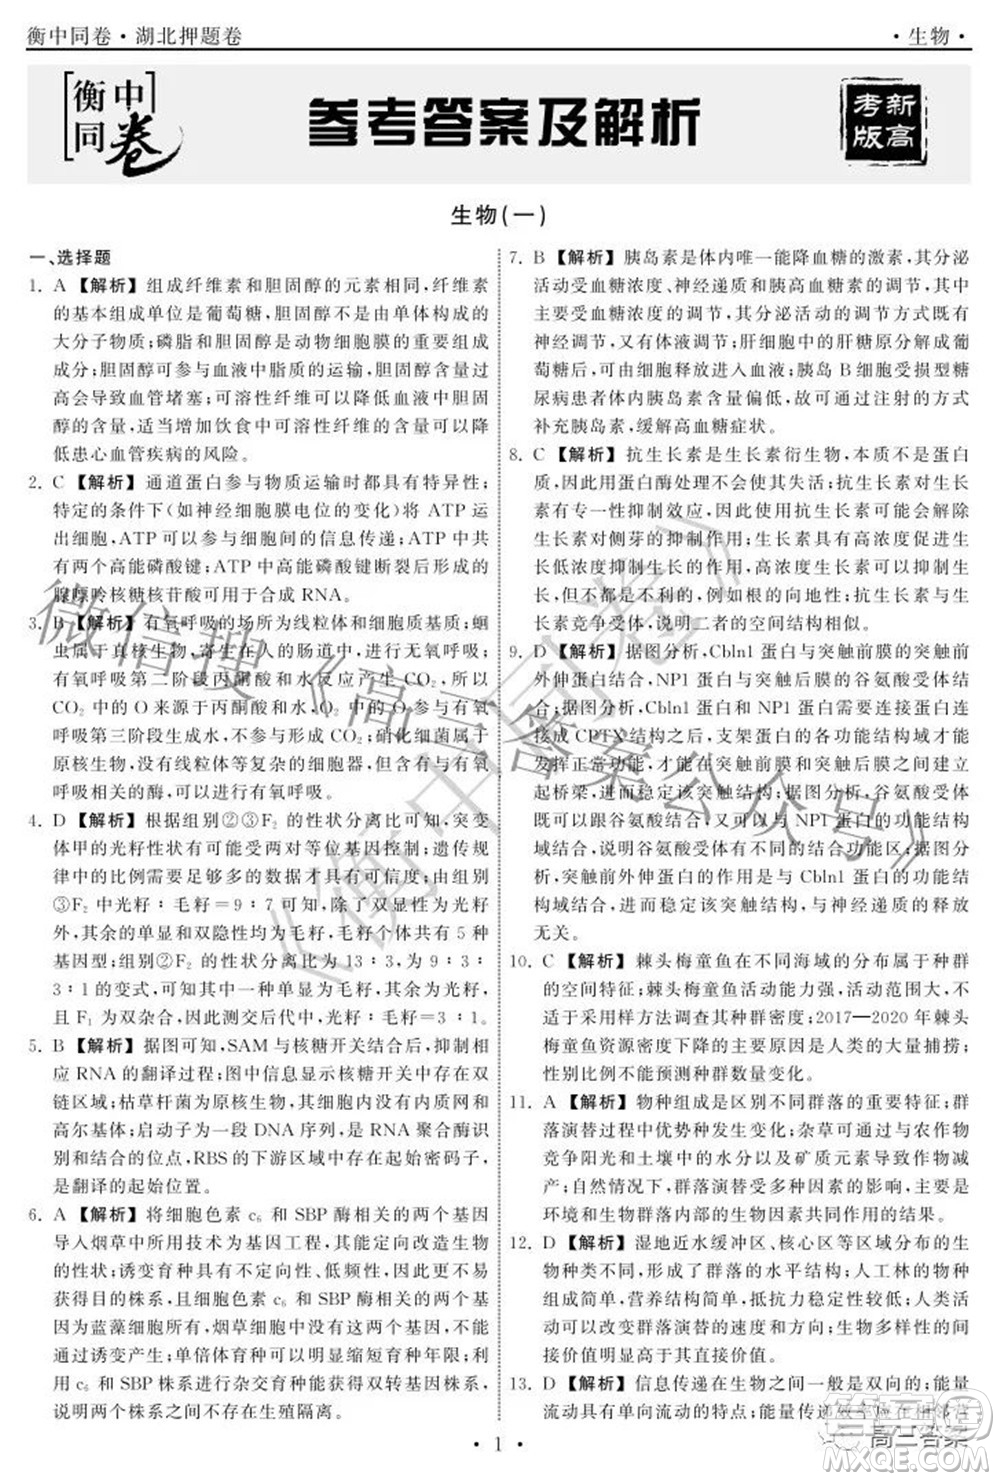 衡中同卷·湖北押题卷
·生物·
衡中
同卷
参考答案及解析
新高
考版
生物(一)
一、选择题
1. A 【解析】组成纤维素和胆固醇的元素相同,纤维素
的基本组成单位是葡萄糖,胆固醇不是由单体组成的
大分子物质;磷脂和胆固醇是动物细胞膜的重要组成
成分;胆固醇可参与血液中脂质的运输,但胆固醇过
高会导致血管堵塞;可溶性纤维可以降低血液中胆固
醇的含量,适当增加饮食中可溶性纤维的含量可以降
低患心血管疾病的风险。
2. C 【解析】通道蛋白参与物质运输时都具有特异性;
特定的条件下(如神经细胞膜电位的变化)将 ATP 运
出细胞,ATP 可以参与细胞间的信息传递;ATP 中共
有两个高能磷酸键;ATP 中高能磷酸键断裂后形成的
腺嘌呤核糖核苷酸可用于合成 RNA。
3. B 【解析】有氧呼吸的场所为线粒体和细胞质基质;蛔
虫属于真核生物,寄生在人的肠道中,进行无氧呼吸;
有氧呼吸第二阶段丙酮酸和水反应产生 CO₂,所以
CO₂ 中的 O 来源于丙酮酸和水,O₂ 中的 O 参与有氧
呼吸第三阶段生成水,不参与形成 CO₂;硝化细菌属于
原核生物,没有线粒体等复杂的细胞器,但含有与有氧
呼吸有关的酶,能进行有氧呼吸。
4. D 【解析】根据组别②③F₂ 的性状分离比可知,突变
体甲的光籽性状有可能受两对等位基因控制;遗传规
律中的比例需要足够多的数据才具有可信度;由组别
③F₂ 中光籽∶毛籽=9∶7 可知,双显性为光籽,其余
的单显和双隐性均为毛籽,毛籽个体共有 5 种
基因型;组别②F₂ 的性状分离比为 13∶3,是 9∶3∶
3∶1 的变式,可知其中一种单显是毛籽,其余是光籽,
且 F₁ 为双杂合,因此测交后代中,光籽∶毛籽=3∶1。
5. B 【解析】据图可知,SAM 与核糖开关结合后,抑制相
应 RNA 的翻译过程;图中信息显示核糖开关中存在双
链区域;枯草杆菌为原核生物,其细胞内没有内质网和
高尔基体;启动子为一段 DNA 序列,是 RNA 聚合酶识
别和结合的位点,RBS 的下游区域中存在起始密码子,
是翻译的起始位置。
6. A 【解析】将细胞色素 c₆ 和 SBP 酶相关的两个基因
导入烟草中所用技术为基因工程,其能定向改造生物的
一些性状;诱变育种具有不定向性、低频性,不易
获得目的株系,且细胞色素 c₆ 和 SBP 酶相关的基因
为蓝藻细胞所有,烟草细胞中没有这两个基因,诱变不
会产生;单倍体育种可以明显缩短育种年限;题中可
利用 c₆ 和 SBP 株系进行杂交育种获得双转基因株系,
说明两个转基因株系之间不存在生殖隔离。
7. B 【解析】胰岛素是体内唯一能降血糖的激素,其分泌
主要受血糖浓度、神经递质及胰高血糖素的调节,其中
受血糖浓度和胰高血糖素的调节方式为体液调节,受
神经递质调节时,其分泌活动的调节方式既有
神经调节,又有体液调节;肝细胞中肝糖原分解成的葡
萄糖可由细胞释放进入血液;胰岛 B 细胞受损型糖
尿病患者体内胰岛素含量偏低,可通过注射的方式
补充胰岛素,缓解高血糖症状。
8. C 【解析】抗生长素是生长素衍生物,不属于蛋白质,
使用蛋白酶处理不会使其失效;抗生长素对生长素具
有一定抑制效应,因此使用抗生长素可能会解除
顶芽对侧芽的抑制作用;低浓度的抗生长素可能会抑
制低浓度生长素的作用,如根的向地性;抗生长素与生
长素竞争受体,说明二者的空间结构相似。
9. D 【解析】据图分析,Cbln1 蛋白与突触前膜的突触前
外伸蛋白结合,NP1 蛋白与突触后膜的谷氨酸受体结
合;据图分析,Cbln1 蛋白和 NP1 蛋白需要连接起来
合成 CPTX 结构之后,支架蛋白的功能结构域才能
发挥正常功能,即在突触前膜和突触后膜之间建立
起桥梁,进而稳定该突触结构;据图分析,谷氨酸受体
既可以跟谷氨酸结合,又可以与 NP1 蛋白的功能结构
域结合,说明谷氨酸受体有多个结合功能区;据图分析,
突触前外伸蛋白的功能结构域与 Cbln1 蛋白的功能结
构域结合,进而稳定该突触结构,与神经递质的释放
无关。
10. C 【解析】棘头梅童鱼在不同海域的分布属于种群
的空间特征;棘头梅童鱼活动能力强,活动范围大,不
适于采用样方法调查其种群密度;2017—2020 年棘头
梅童鱼资源密度下降的主要原因是人类的大量捕捞;
性别比例不能预测种群数量变化。
11. A 【解析】物种组成是区别不同群落的重要特征;群
落演替过程中优势种发生变化;杂草可通过与农作物
竞争阳光和土壤中的水分以及矿质元素而使作物减
产;自然环境下,群落演替受多种因素的影响,主要是
环境和生物群落内部的生物因素共同作用的结果。
12. D 【解析】湿地近水缓冲区、核心区等区域分布着不同
生物类型,形成了群落的水平结构;人工林的物种
类型单一,营养结构简单,抵抗力稳定性较低;人类活动
可以改变群落演替的速度和方向;生物多样性的间
接价值明显高于其直接价值。
13. D 【解析】信息传递在生物之间一般是双向的;能量
流动具有单向流动的特征,
· 1 ·
微信搜《高三答案公众号》
《衡中同卷》
高三答案